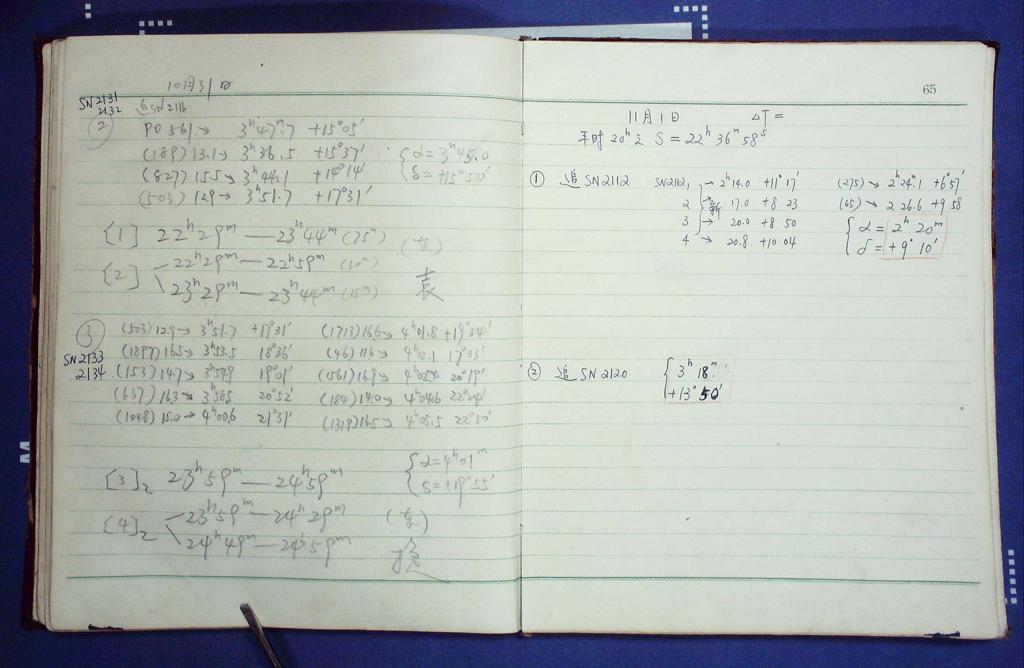 10月31日
SN2131
2132
追SN2116
②
PO 561→ 3ʰ47ᵐ.7 +15°05′
(189)13.1→ 3ʰ36.5 +15°37′
(827)15.5→ 3ʰ44.1 +14°14′
(503)12.9→ 3ʰ51.7 +17°31′
{α=3ʰ45.0
δ=+15°50′
[1] 22ʰ29ᵐ—23ʰ44ᵐ(75ᵐ)
[2] 22ʰ29ᵐ—22ʰ59ᵐ(30ᵐ)
23ʰ29ᵐ—23ʰ44ᵐ(15ᵐ)
③
SN2133
2134
(503)12.9→ 3ʰ51.7 +17°31′ (1713)16.6→ 4ʰ01.8 +19°34′
(1897)16.5→ 3ʰ53.5 18°36′ (46)11.6→ 4ʰ02.1 17°33′
(153)14.7→ 3ʰ54.9 19°01′ (1561)16.9→ 20°19′
(637)16.3→ 3ʰ58.5 20°52′ (184)14.0→ 4ʰ04.6
(1048)15.0→ 4ʰ00.6 21°31′ (1319)16.5→ 4ʰ05.5 22°10′
[3]₂ 23ʰ59ᵐ—24ʰ59ᵐ
{α=4ʰ01ᵐ
δ=+19°55′
[4]₂ 23ʰ59ᵐ—24ʰ29ᵐ
24ʰ49ᵐ—24ʰ59ᵐ
65
11月1日 ΔT=
平时20ʰ之 S=22ʰ36ᵐ58ˢ
① 追SN2112 SN2121→ 2ʰ14.0 +11°17′ (275)→ 2ʰ24ᵐ.1 +6°57′
2 新 17.0 +8 23 (65)→ 2 26.6 +9 58
3 → 20.0 +8 50
4 → 20.8 +10 04
{α=2ʰ20ᵐ
δ=+9°10′
② 追SN2120 {3ʰ18ᵐ.
+13°50′